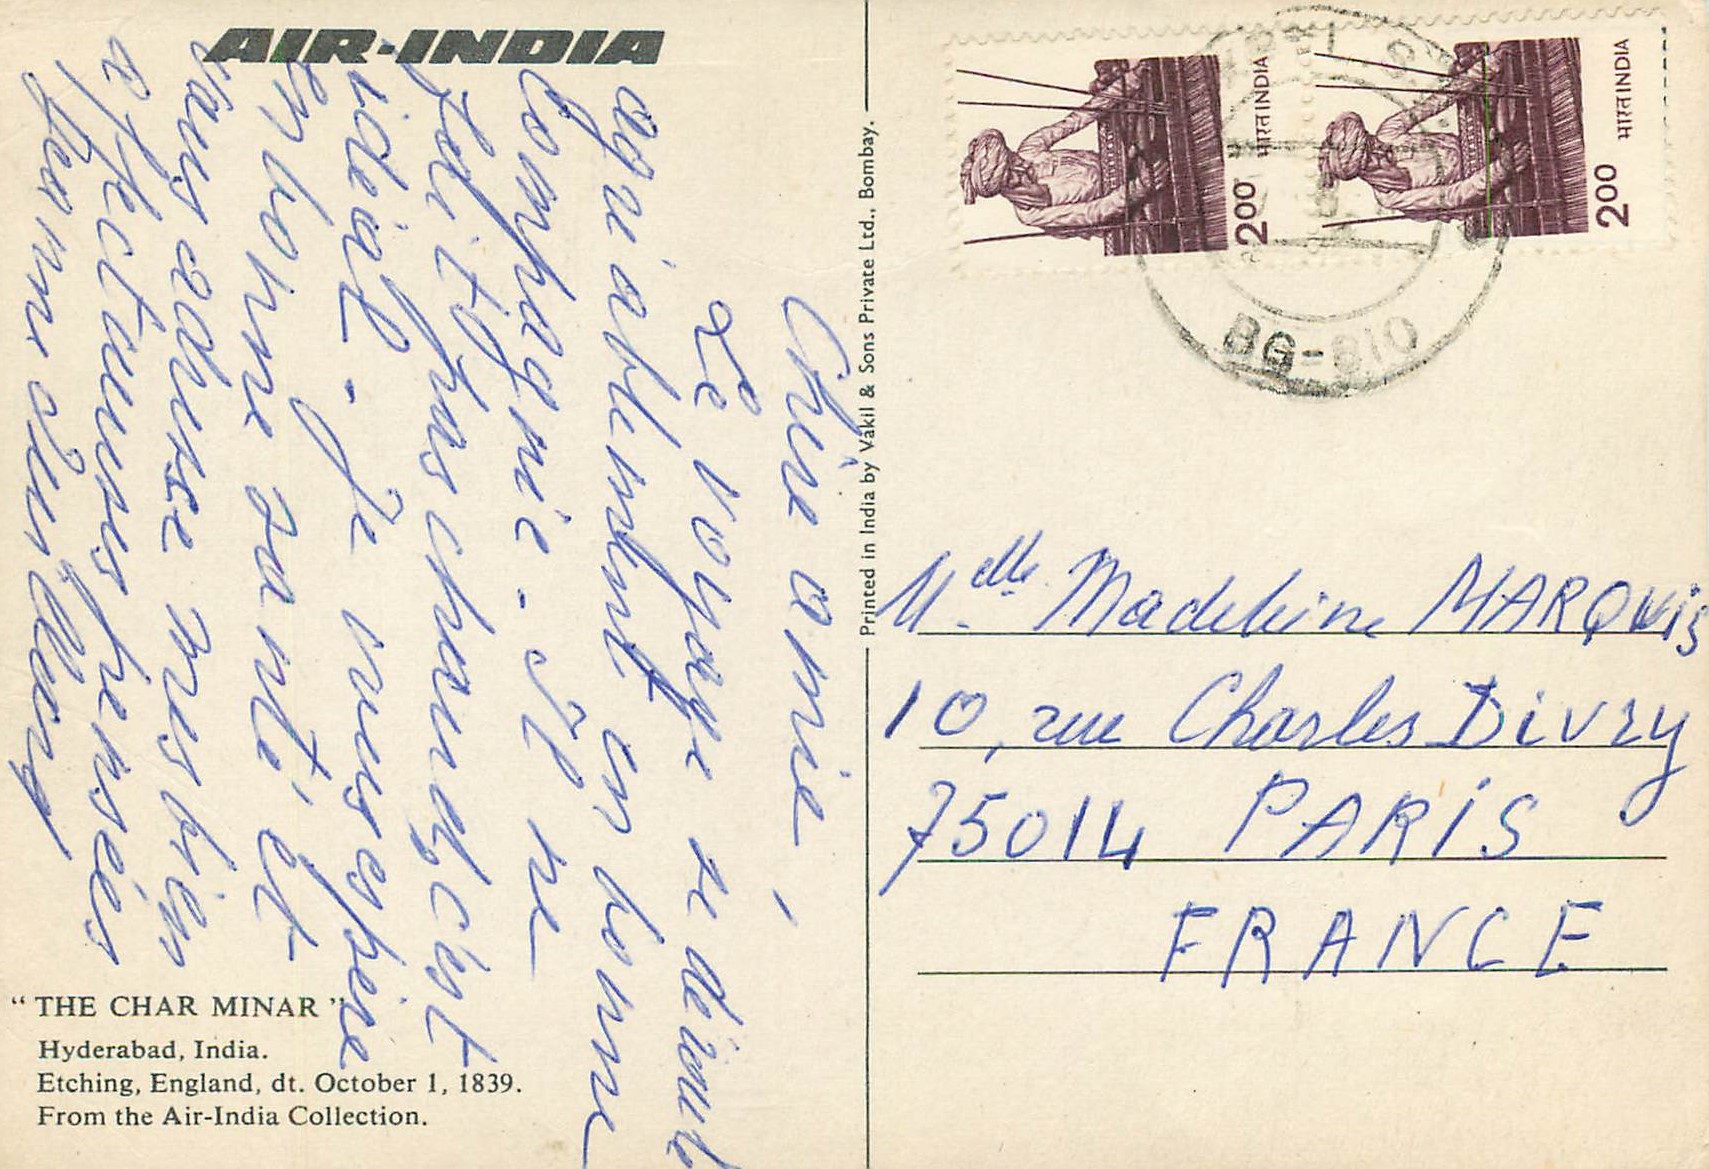 AIR-INDIA
Chère amie,
Le voyage se déroule
agréablement en bonne
compagnie. Il ne
fait pas chaud, c'est
idéal. Je vous espère
en bonne santé et
vous adresse mes bien
affectueuses pensées
Yvonne
"THE CHAR MINAR"
Hyderabad, India.
Etching, England, dt. October 1, 1839.
From the Air-India Collection.
Printed in India by Vakil & Sons Private Ltd., Bombay.
भारत INDIA
200
भारत INDIA
200
Melle Madeleine MARQUIS
10, rue Charles DIVRY
75014 PARIS
FRANCE